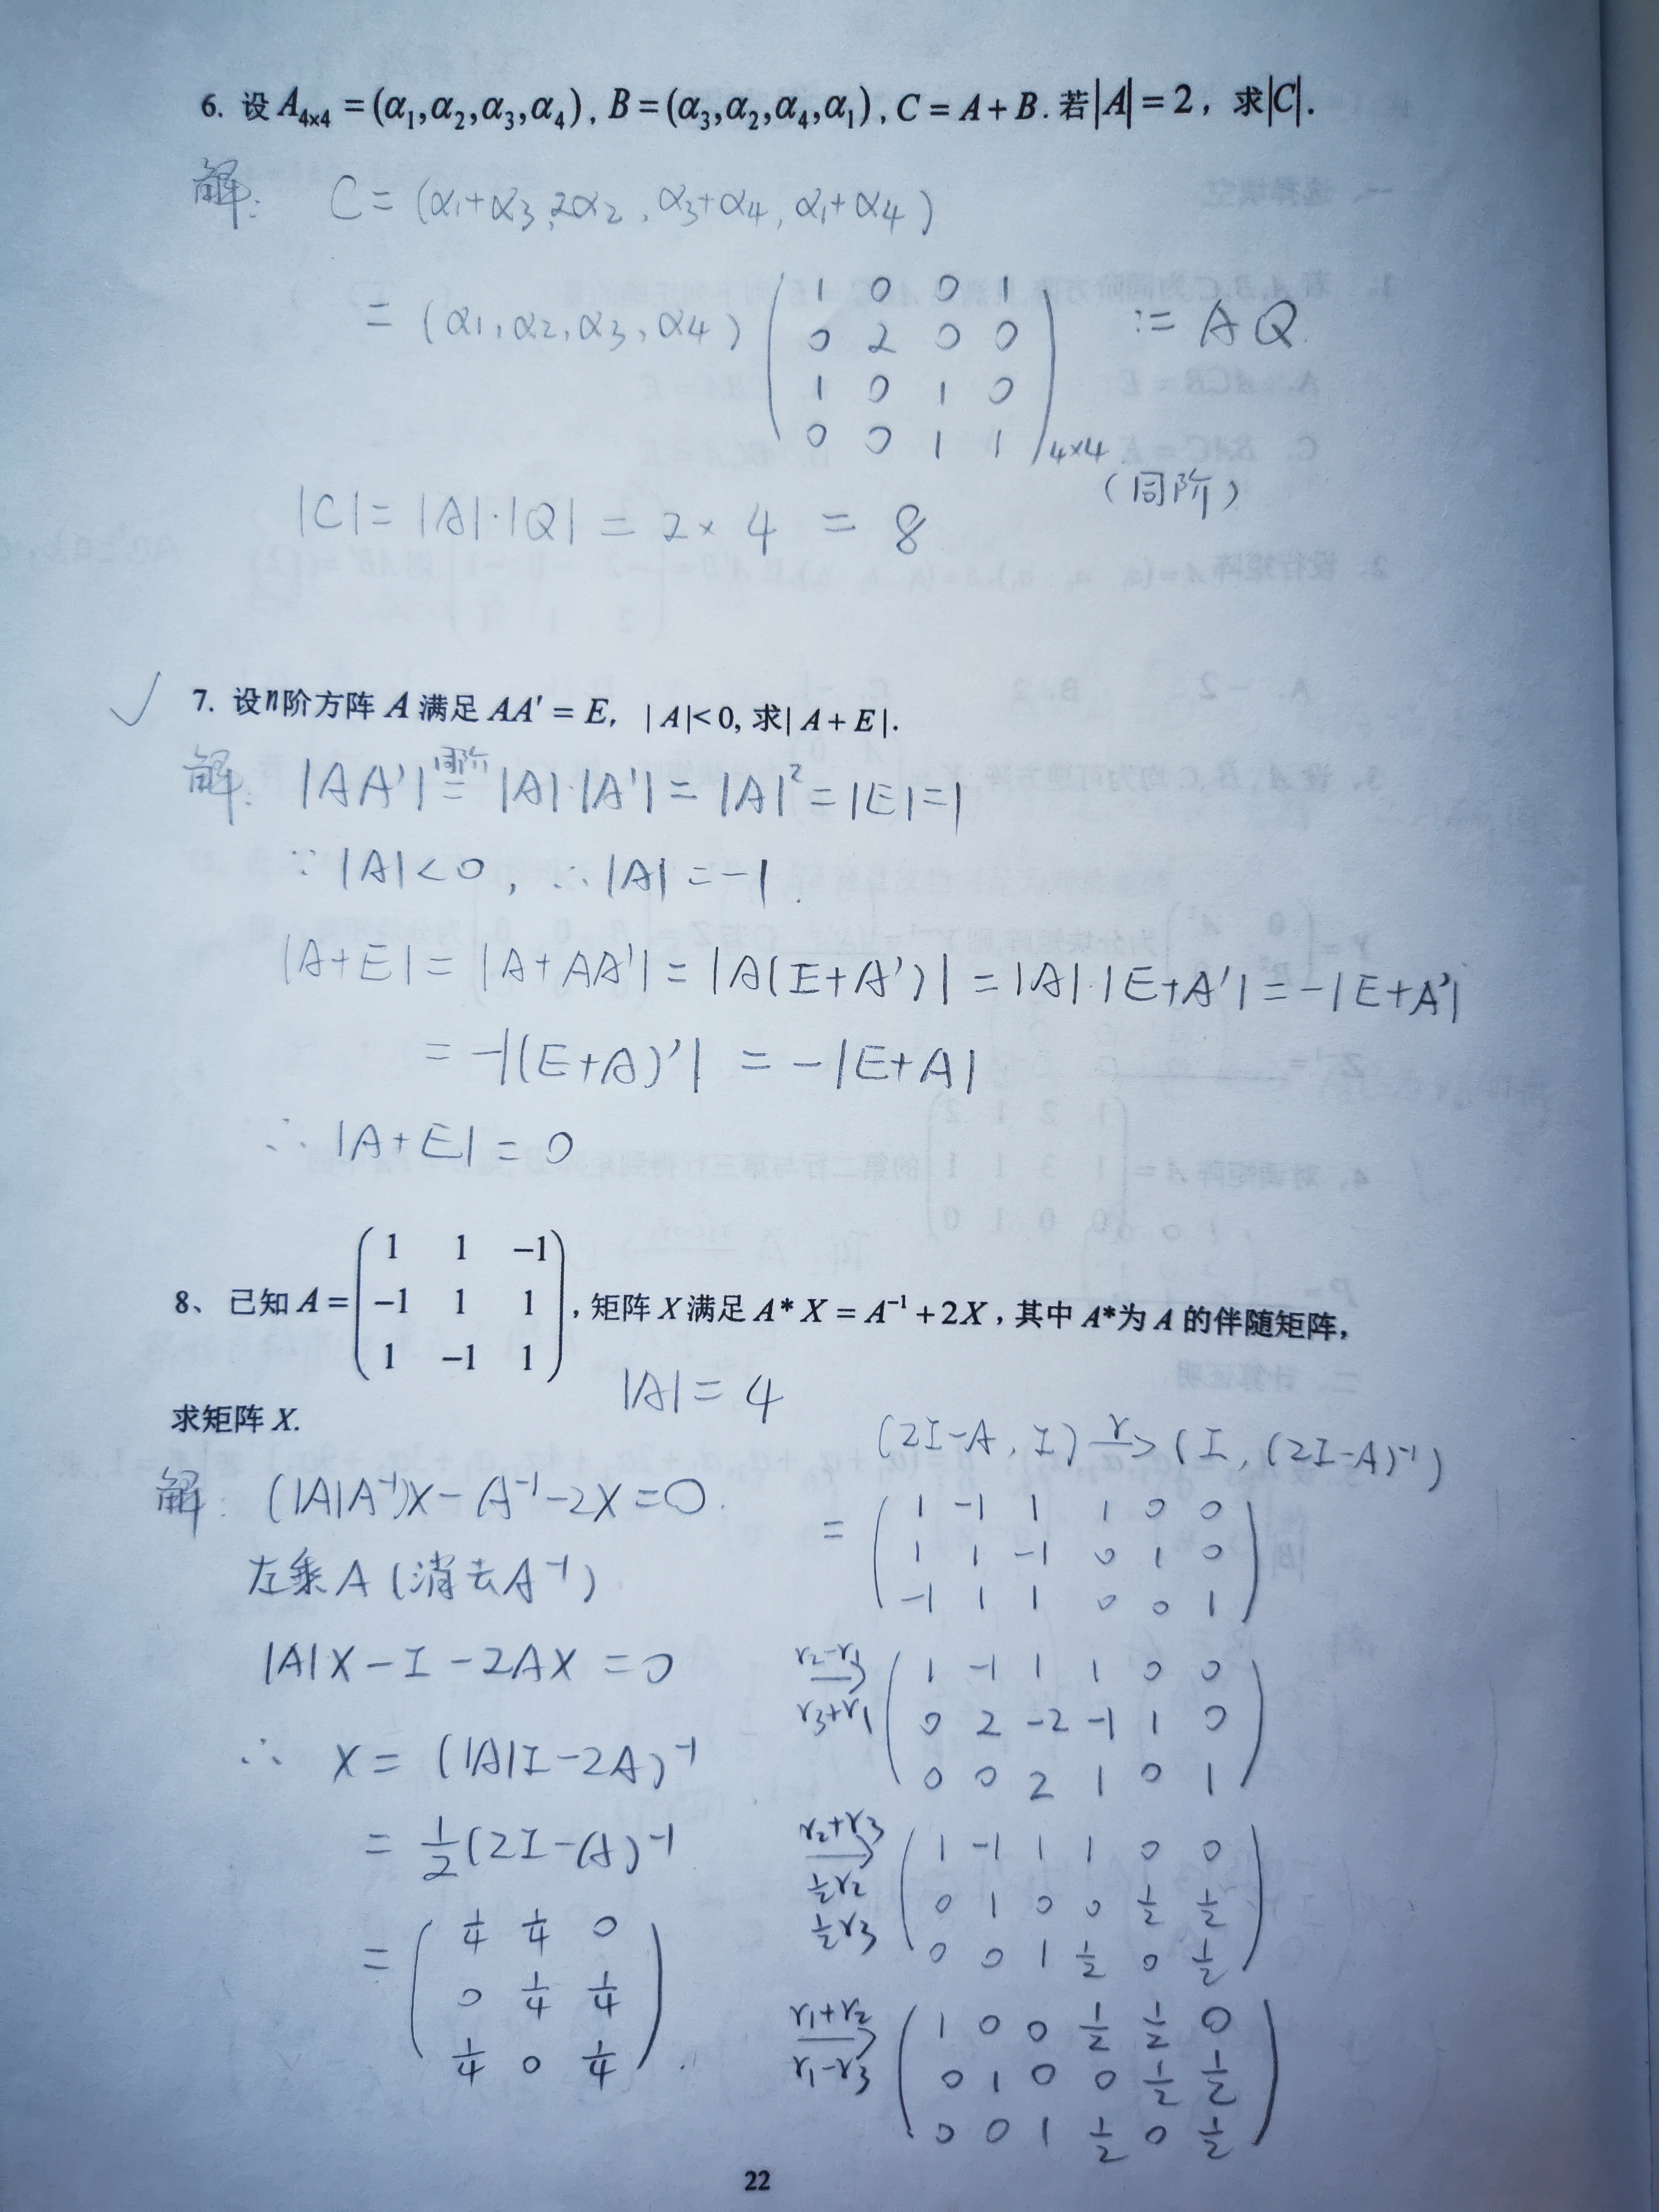 6. 设 A₄ₓ₄ = (α₁,α₂,α₃,α₄), B = (α₃,α₂,α₄,α₁), C = A + B. 若|A| = 2, 求|C|.
解: C = (α₁+α₃, 2α₂, α₃+α₄, α₁+α₄)
= (α₁,α₂,α₃,α₄) ( 1 0 0 1
0 2 0 0
1 0 1 0
0 0 1 1 )₄ₓ₄ := AQ.
(同阶)
|C| = |A|·|Q| = 2×4 = 8
✓ 7. 设n阶方阵 A 满足 AA′ = E, |A|<0, 求|A + E|.
解: |AA′| 同阶= |A|·|A′| = |A|² = |E| = 1
∵ |A|<0, ∴ |A| = -1.
|A+E| = |A+AA′| = |A(E+A′)| = |A|·|E+A′| = -|E+A′|
= -|(E+A)′| = -|E+A|
∴ |A+E| = 0
8、已知 A = ( 1 1 −1
−1 1 1
1 −1 1 ), 矩阵 X 满足 A* X = A⁻¹ + 2X, 其中 A*为 A 的伴随矩阵,
求矩阵 X.
|A| = 4
解: (|A|A⁻¹)X - A⁻¹ - 2X = 0.
左乘A (消去A⁻¹)
|A|X - I - 2AX = 0
∴ X = (|A|I - 2A)⁻¹
= ½(2I-A)⁻¹
= ( ¼ ¼ 0
0 ¼ ¼
¼ 0 ¼ ).
(2I-A, I) r→ (I, (2I-A)⁻¹)
= ( 1 -1 1 1 0 0
1 1 -1 0 1 0
-1 1 1 0 0 1 )
r₂-r₁
→
r₃+r₁
( 1 -1 1 1 0 0
0 2 -2 -1 1 0
0 0 2 1 0 1 )
r₂+r₃
→
½r₂
½r₃
( 1 -1 1 1 0 0
0 1 0 0 ½ ½
0 0 1 ½ 0 ½ )
r₁+r₂
→
r₁-r₃
( 1 0 0 ½ ½ 0
0 1 0 0 ½ ½
0 0 1 ½ 0 ½ )
22